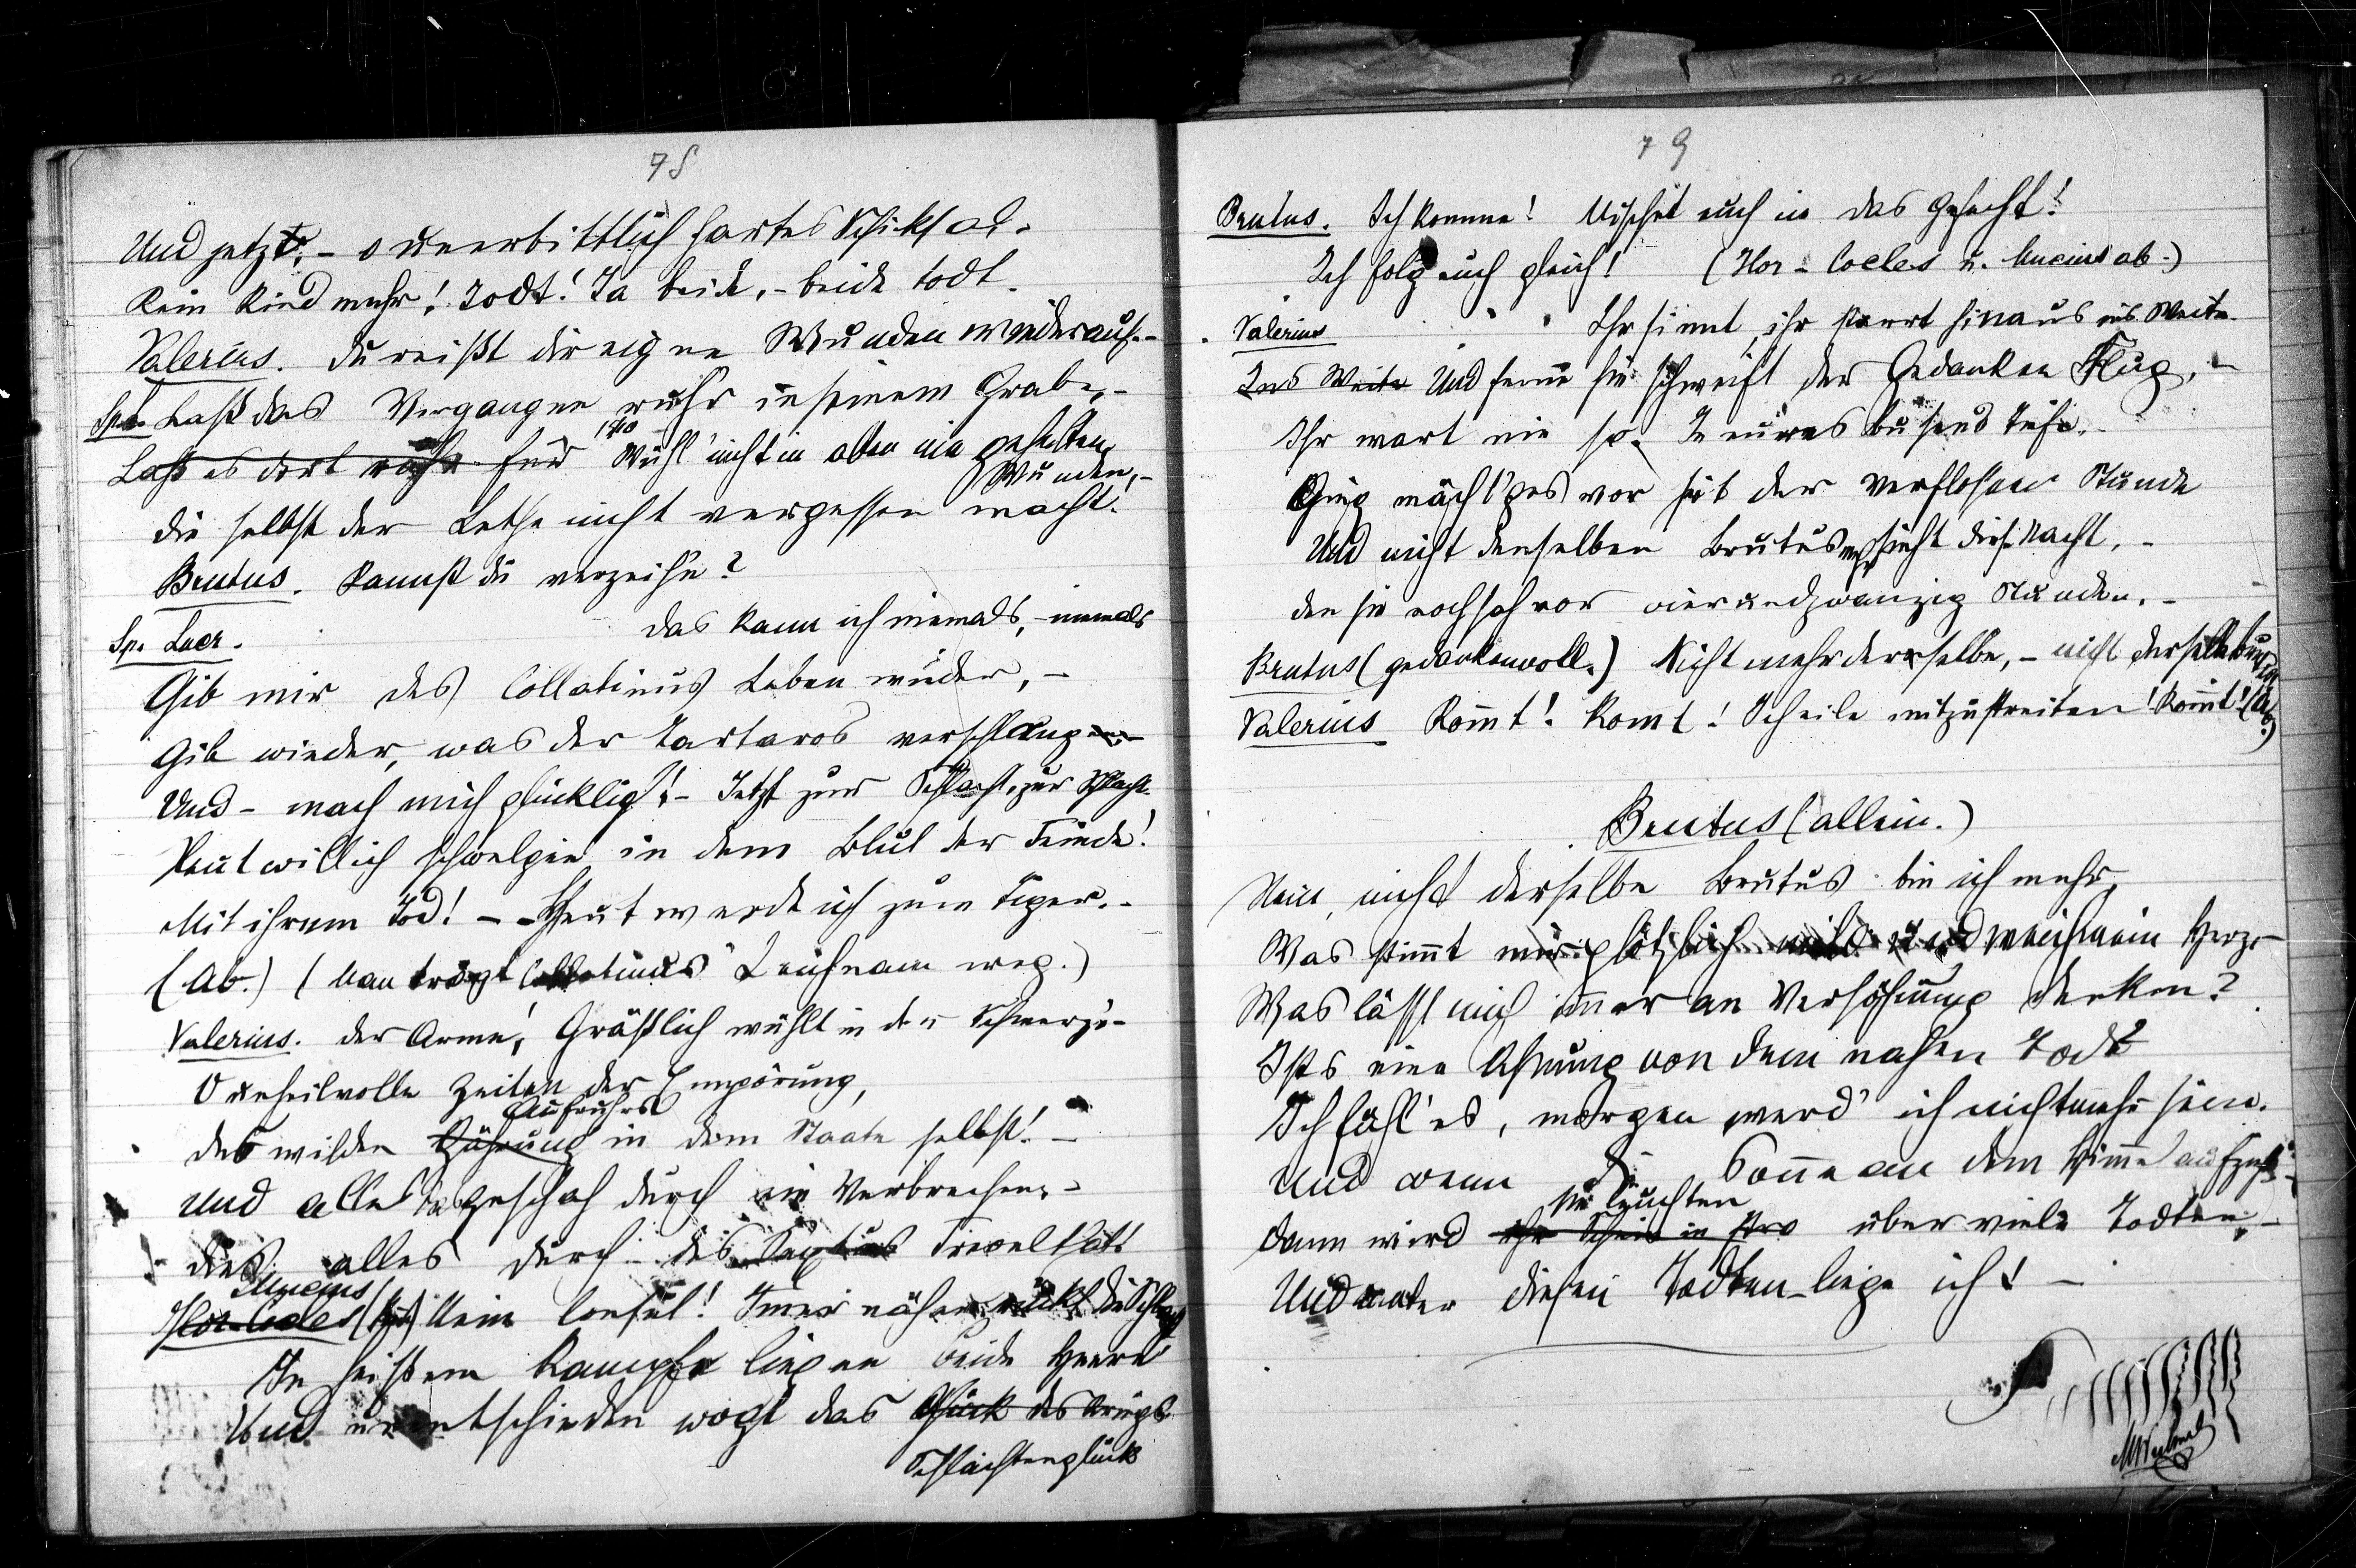 78
Und jetzt, – o unerbittlich hartes Schiksal.
Kein Kind mehr! Todt! Ja beide, – beide todt.
Valerius. Du reißt dir eigne Wunden wieder auf. –
Sp. L. Laß das Vergangne ruh'n in seinem Grabe, –
Laß es dort
Wühl' nicht in alten nie geheilten
Wunden, –
die selbst der Lethe nicht vergessen macht!
Brutus. Kannst du verzeih'n?
Sp. Lucr. Das kann ich niemals, – niemals
Gib mir des Collatinus Leben wieder, –
Gib wieder, was der Tartaros verschlang –
Und – mach mich glücklich! – Jetzt zur Schlacht, zur Schlacht.
Heut will ich schwelgen in dem Blut der Feinde!
Mit ihrem Tod! – Heut werde ich zum Tiger. –
(Ab.) (Man trägt Collatinus' Leichnam weg.)
Valerius. Der Arme! Gräßlich wühlt in dem Schmerze –
O unheilvolle Zeiten der Empörung,
Aufruhrs
des wilden Gährung in dem Staate selbst! –
Und alle das geschah durch ein Verbrechen, –
dies alles durch des Sextus Frevelthat!
Mucius
Hor. Cocles Mein Consul! Imer näher rückt die Schlacht
In heißem Kampfe liegen beide Heere
Und unentschieden wogt das Glück des Kriegs
Schlachtenglück
79
Brutus. Ich komme! Mischet euch in das Gefecht!
Ich folg euch gleich! (Hor. Cocles u. Mucius ab.)
Valerius Ihr sinnt, ihr starrt hinaus ins Weite.
Ins Weite Und ferne hin schweift der Gedanken Flug, –
Ihr wart nie so. In eures Busens Tiefe
Ging mächt'ges vor seit der verfloßnen Stunde
Und nicht denselben Brutus mehr sieht diese Nacht, –
den sie noch sah vor vierundzwanzig Stunden. –
Brutus (gedankenvoll.) Nicht mehr derselbe, – nicht derselbe
Valerius Komt! Komt! Ich eile mitzustreiten! Komt! (Ab.)
Brutus (allein.)
Nein, nicht derselbe Brutus bin ich mehr,
Was stimt mir plötzlich mild und weich mein Herz –
Was läßt mich imer an Versöhnung denken?
Ists eine Ahnung von dem nahen Tode
Ich fühl' es, morgen werd' ich nicht mehr sein.
Und wenn die Sonne an dem Himel aufzieht
sie leuchten
dann wird ihr Schein über viele Todten, –
Und unter diesen Todten liege ich! –